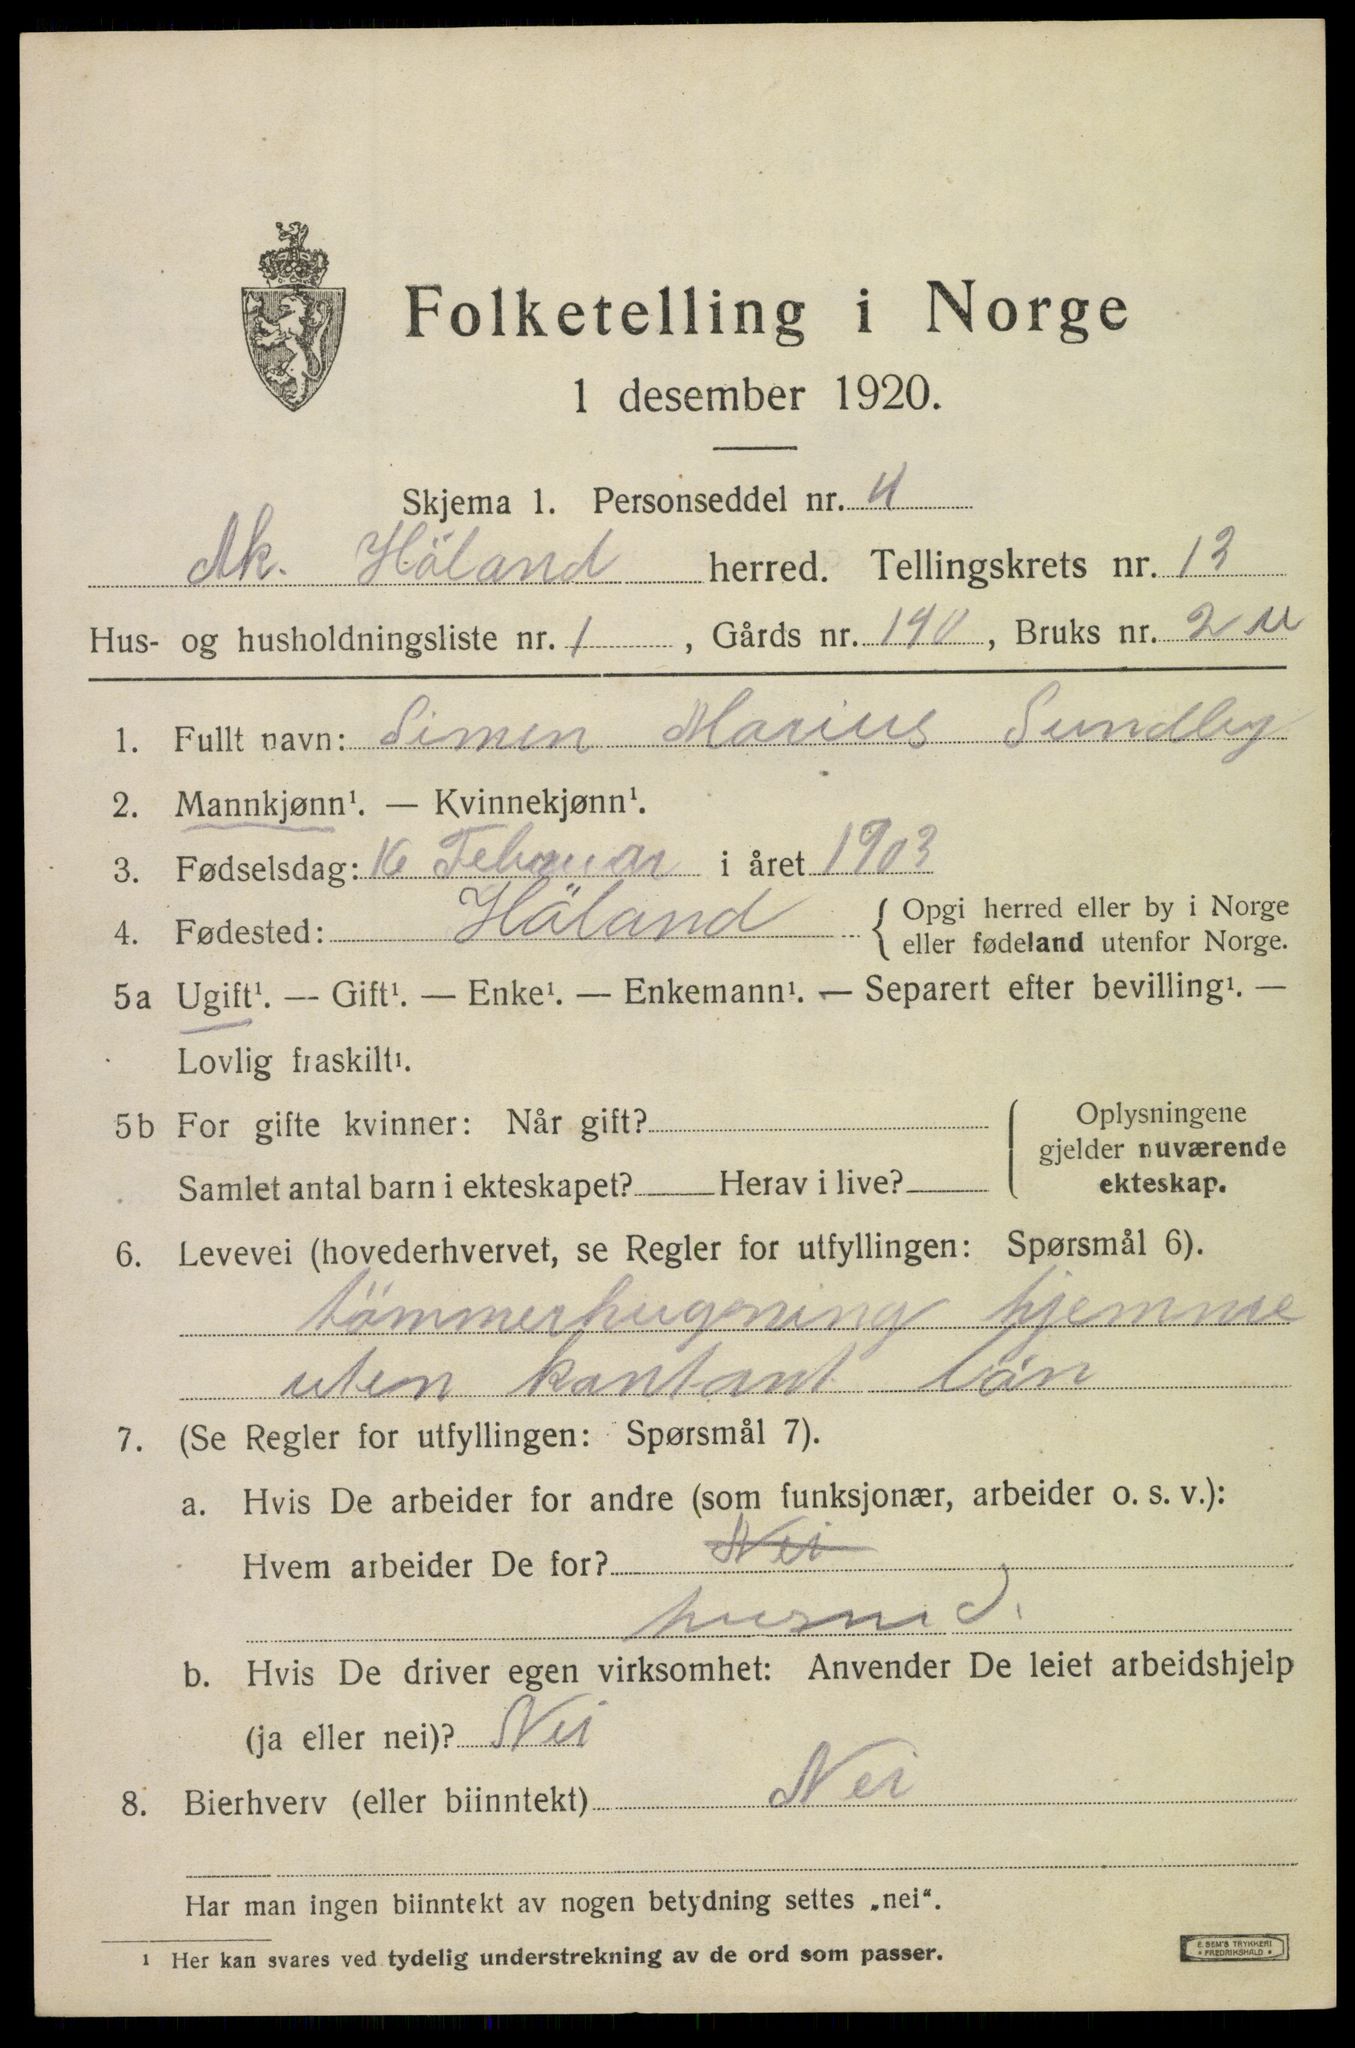 Folketelling i Norge
1 desember 1920.
Skjema 1. Personseddel nr. 4
Ak. Höland herred. Tellingskrets nr. 13
Hus- og husholdningsliste nr. 1, Gårds nr. 190, Bruks nr. 2
1. Fullt navn: Simen Marius Sundby
2. Mannkjønn¹. — Kvinnekjønn¹.
3. Fødselsdag: 16 Februar i året 1903
4. Fødested: Höland { Opgi herred eller by i Norge
eller fødeland utenfor Norge.
5a Ugift¹. — Gift¹. — Enke¹. — Enkemann¹. — Separert efter bevilling¹. —
Lovlig fraskilt¹.
5b For gifte kvinner: Når gift?
Samlet antal barn i ekteskapet? Herav i live?
Oplysningene
gjelder nuværende
ekteskap.
6. Levevei (hovederhvervet, se Regler for utfyllingen: Spørsmål 6).
tömmerhugning hjemme
uten kontant lön
7. (Se Regler for utfyllingen: Spørsmål 7).
a. Hvis De arbeider for andre (som funksjonær, arbeider o. s. v.):
Hvem arbeider De for? Nei
b. Hvis De driver egen virksomhet: Anvender De leiet arbeidshjelp
(ja eller nei)? Nei
8. Bierhverv (eller biinntekt) Nei
Har man ingen biinntekt av nogen betydning settes „nei“.
¹ Her kan svares ved tydelig understrekning av de ord som passer.
E. SEM'S TRYKKERI
* FREDRIKSHALD *